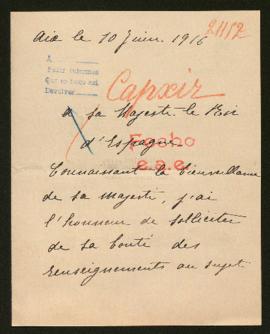 Aix le 10 Juin. 1916
21152
A
Pedir informes
Devolver
Capxir
a sa Majesté le Roi
d'Espagne.
Fecho
Connaissant la bienveillance
de sa majesté, j'ai
l'honneur de solliciter
de sa bonté des
renseignements au sujet